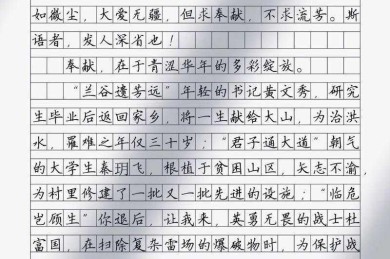 如微尘，大爱无疆，但求奉献，不求流芳。斯
语者，发人深省也！
奉献，在于青涩华年的多彩绽放。
“兰谷遗芳远”年轻的书记黄文秀，研究
生毕业后返回家乡，将一生献给大山，为治洪
水，罹难之年仅三十岁；“君子通大道”朝气
的大学生秦玥飞，根植于贫困山区，矢志不渝，
为村里修建了一批又一批先进的设施；“临危
岂顾生”你退后，让我来，英勇无畏的战士杜
富国，在扫除复杂雷场的爆破物时，为保护战